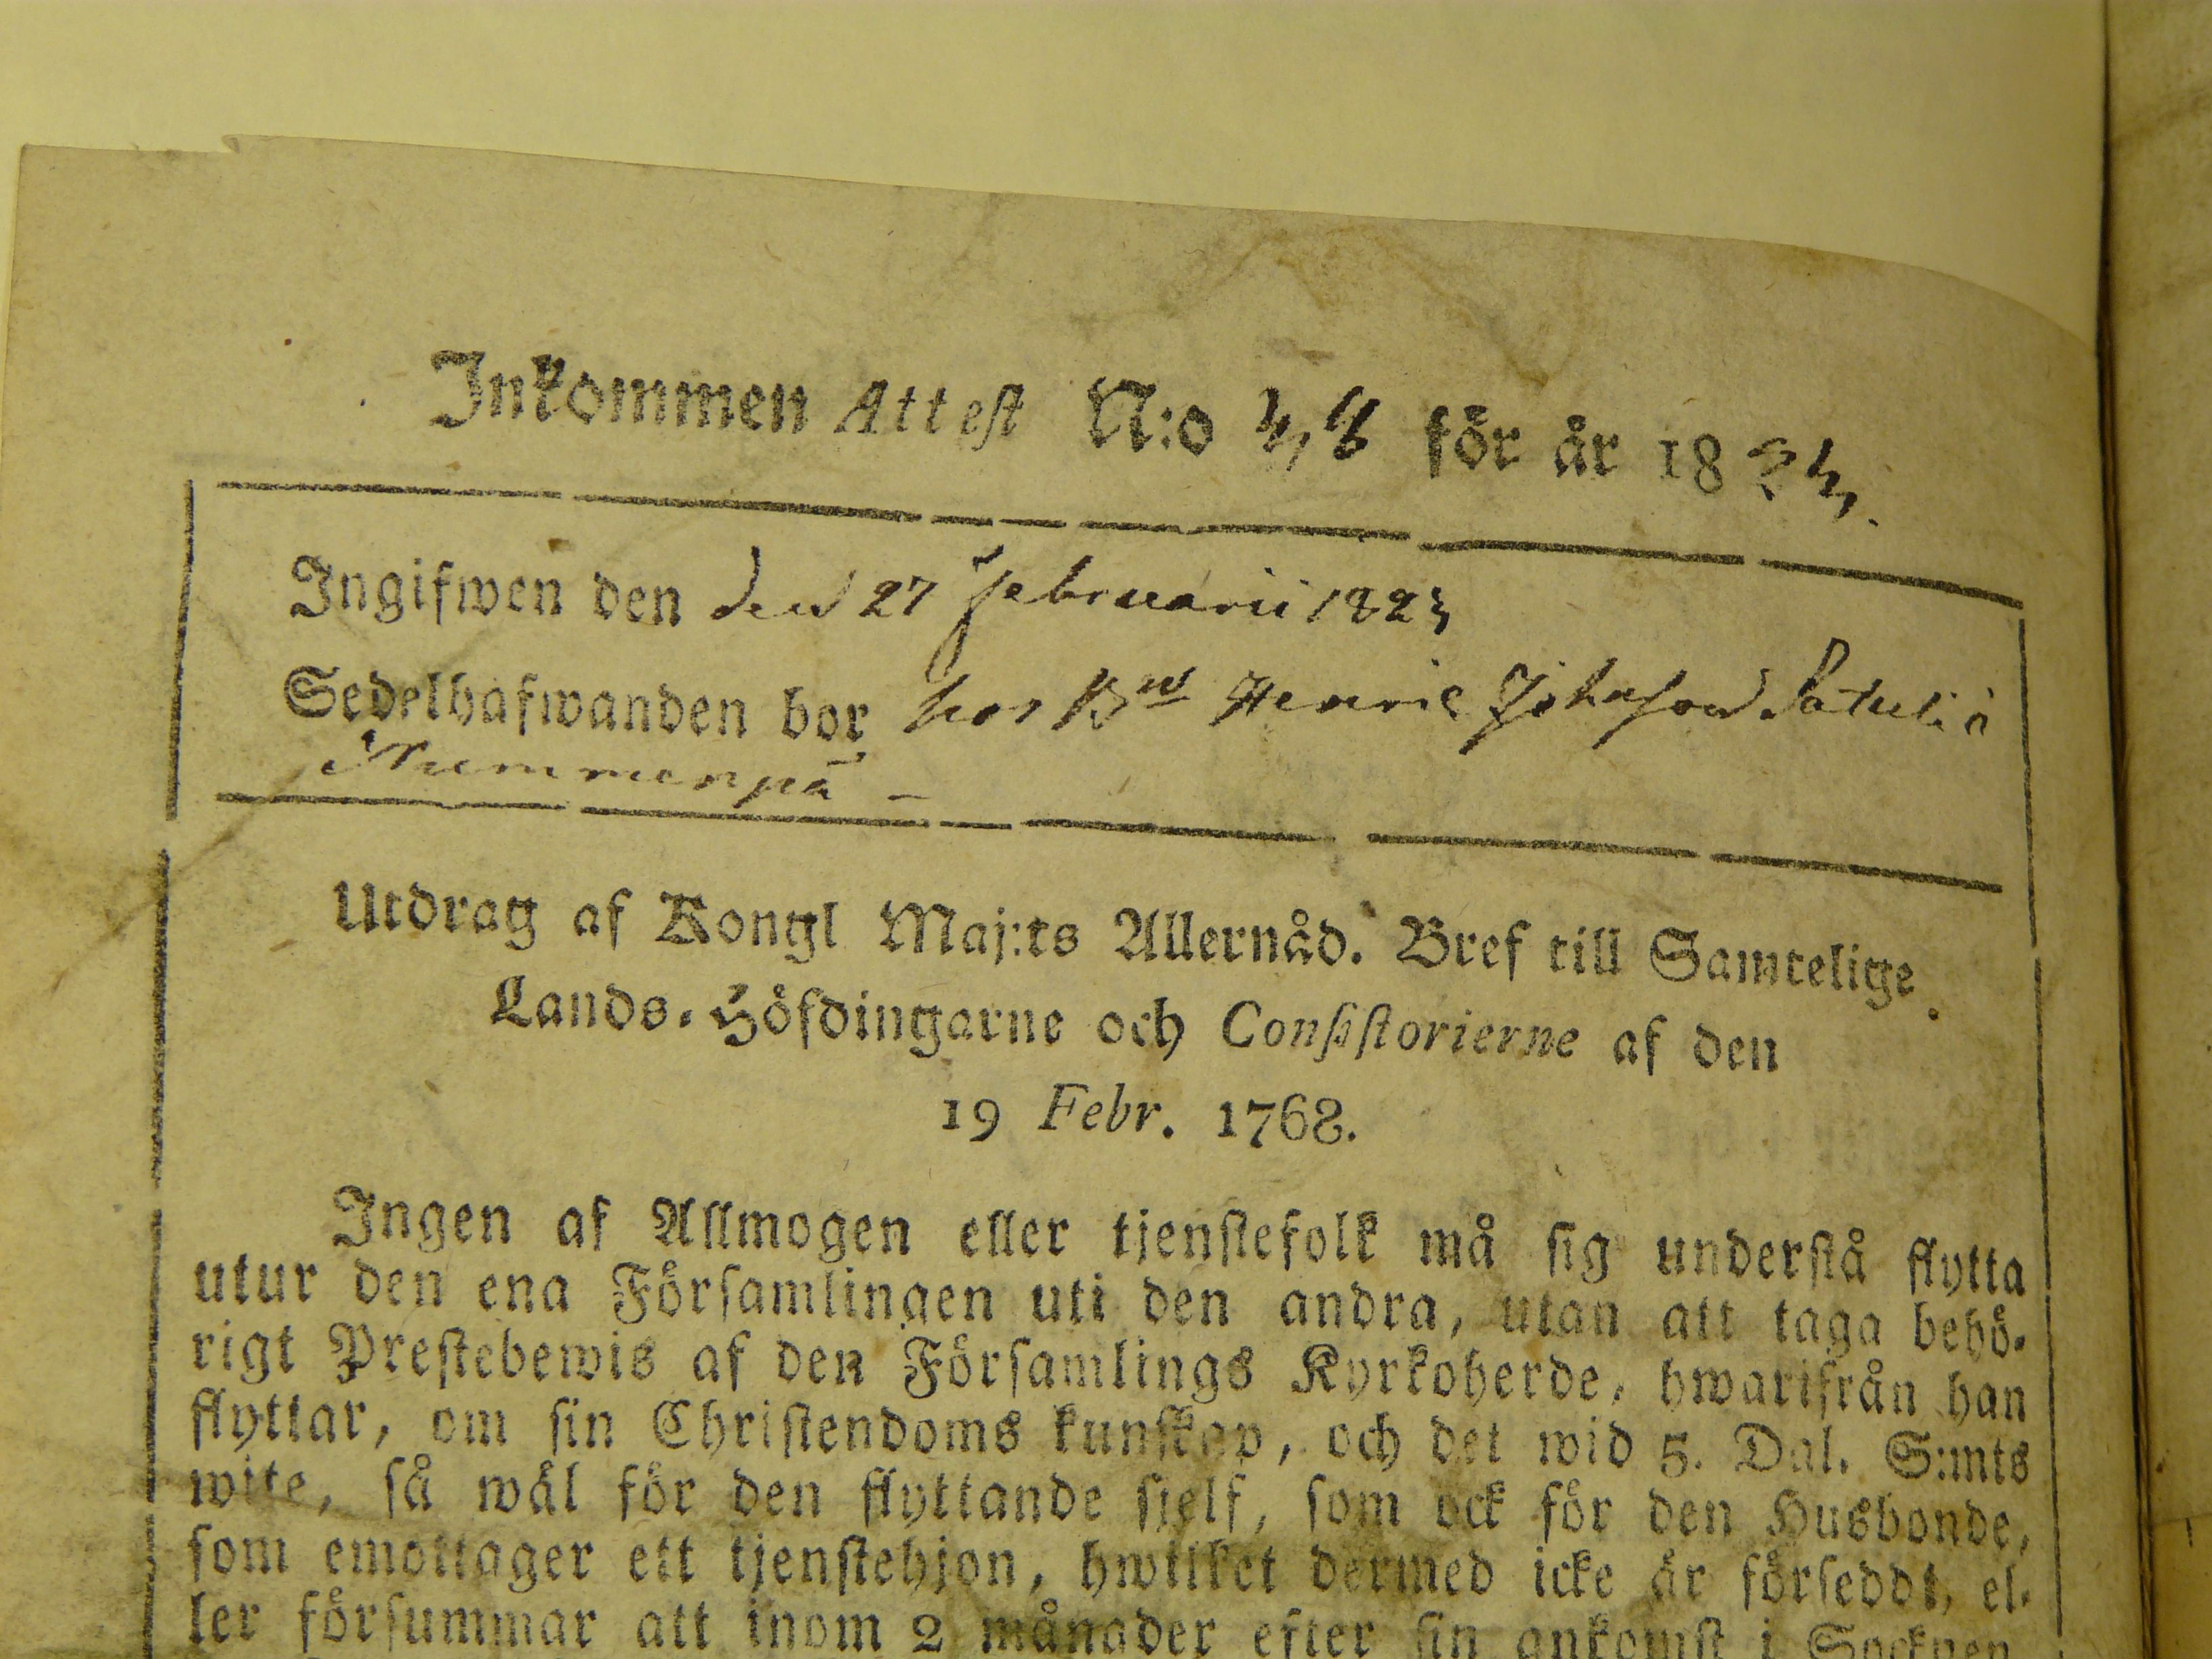 Inkommen Attest N:o 48 för år 1824.
Ingifwen den den 27 Februarii 1824
Sedelhafwanden bor hos Bn Henric Johnsson i
Nummenpä
Utdrag af Kongl Maj:ts Allernåd. Bref till Samtelige
Lands-Höfdingarne och Consistorierne af den
19 Febr. 1768.
Ingen af Allmogen eller tjenstefolk må sig understå flytta
utur den ena Församlingen uti den andra, utan att taga behö-
rigt Prestebewis af den Församlings Kyrkoherde, hwarifrån han
flyttar, om sin Christendoms kunskap, och det wid 5. Dal. S:mts
wite, så wäl för den flyttande sjelf, som ock för den Husbonde,
som emottager ett tjenstehjon, hwilket dermed icke är förseddt, el-
ler försummar att inom 2 månader efter sin ankomst i Socknen